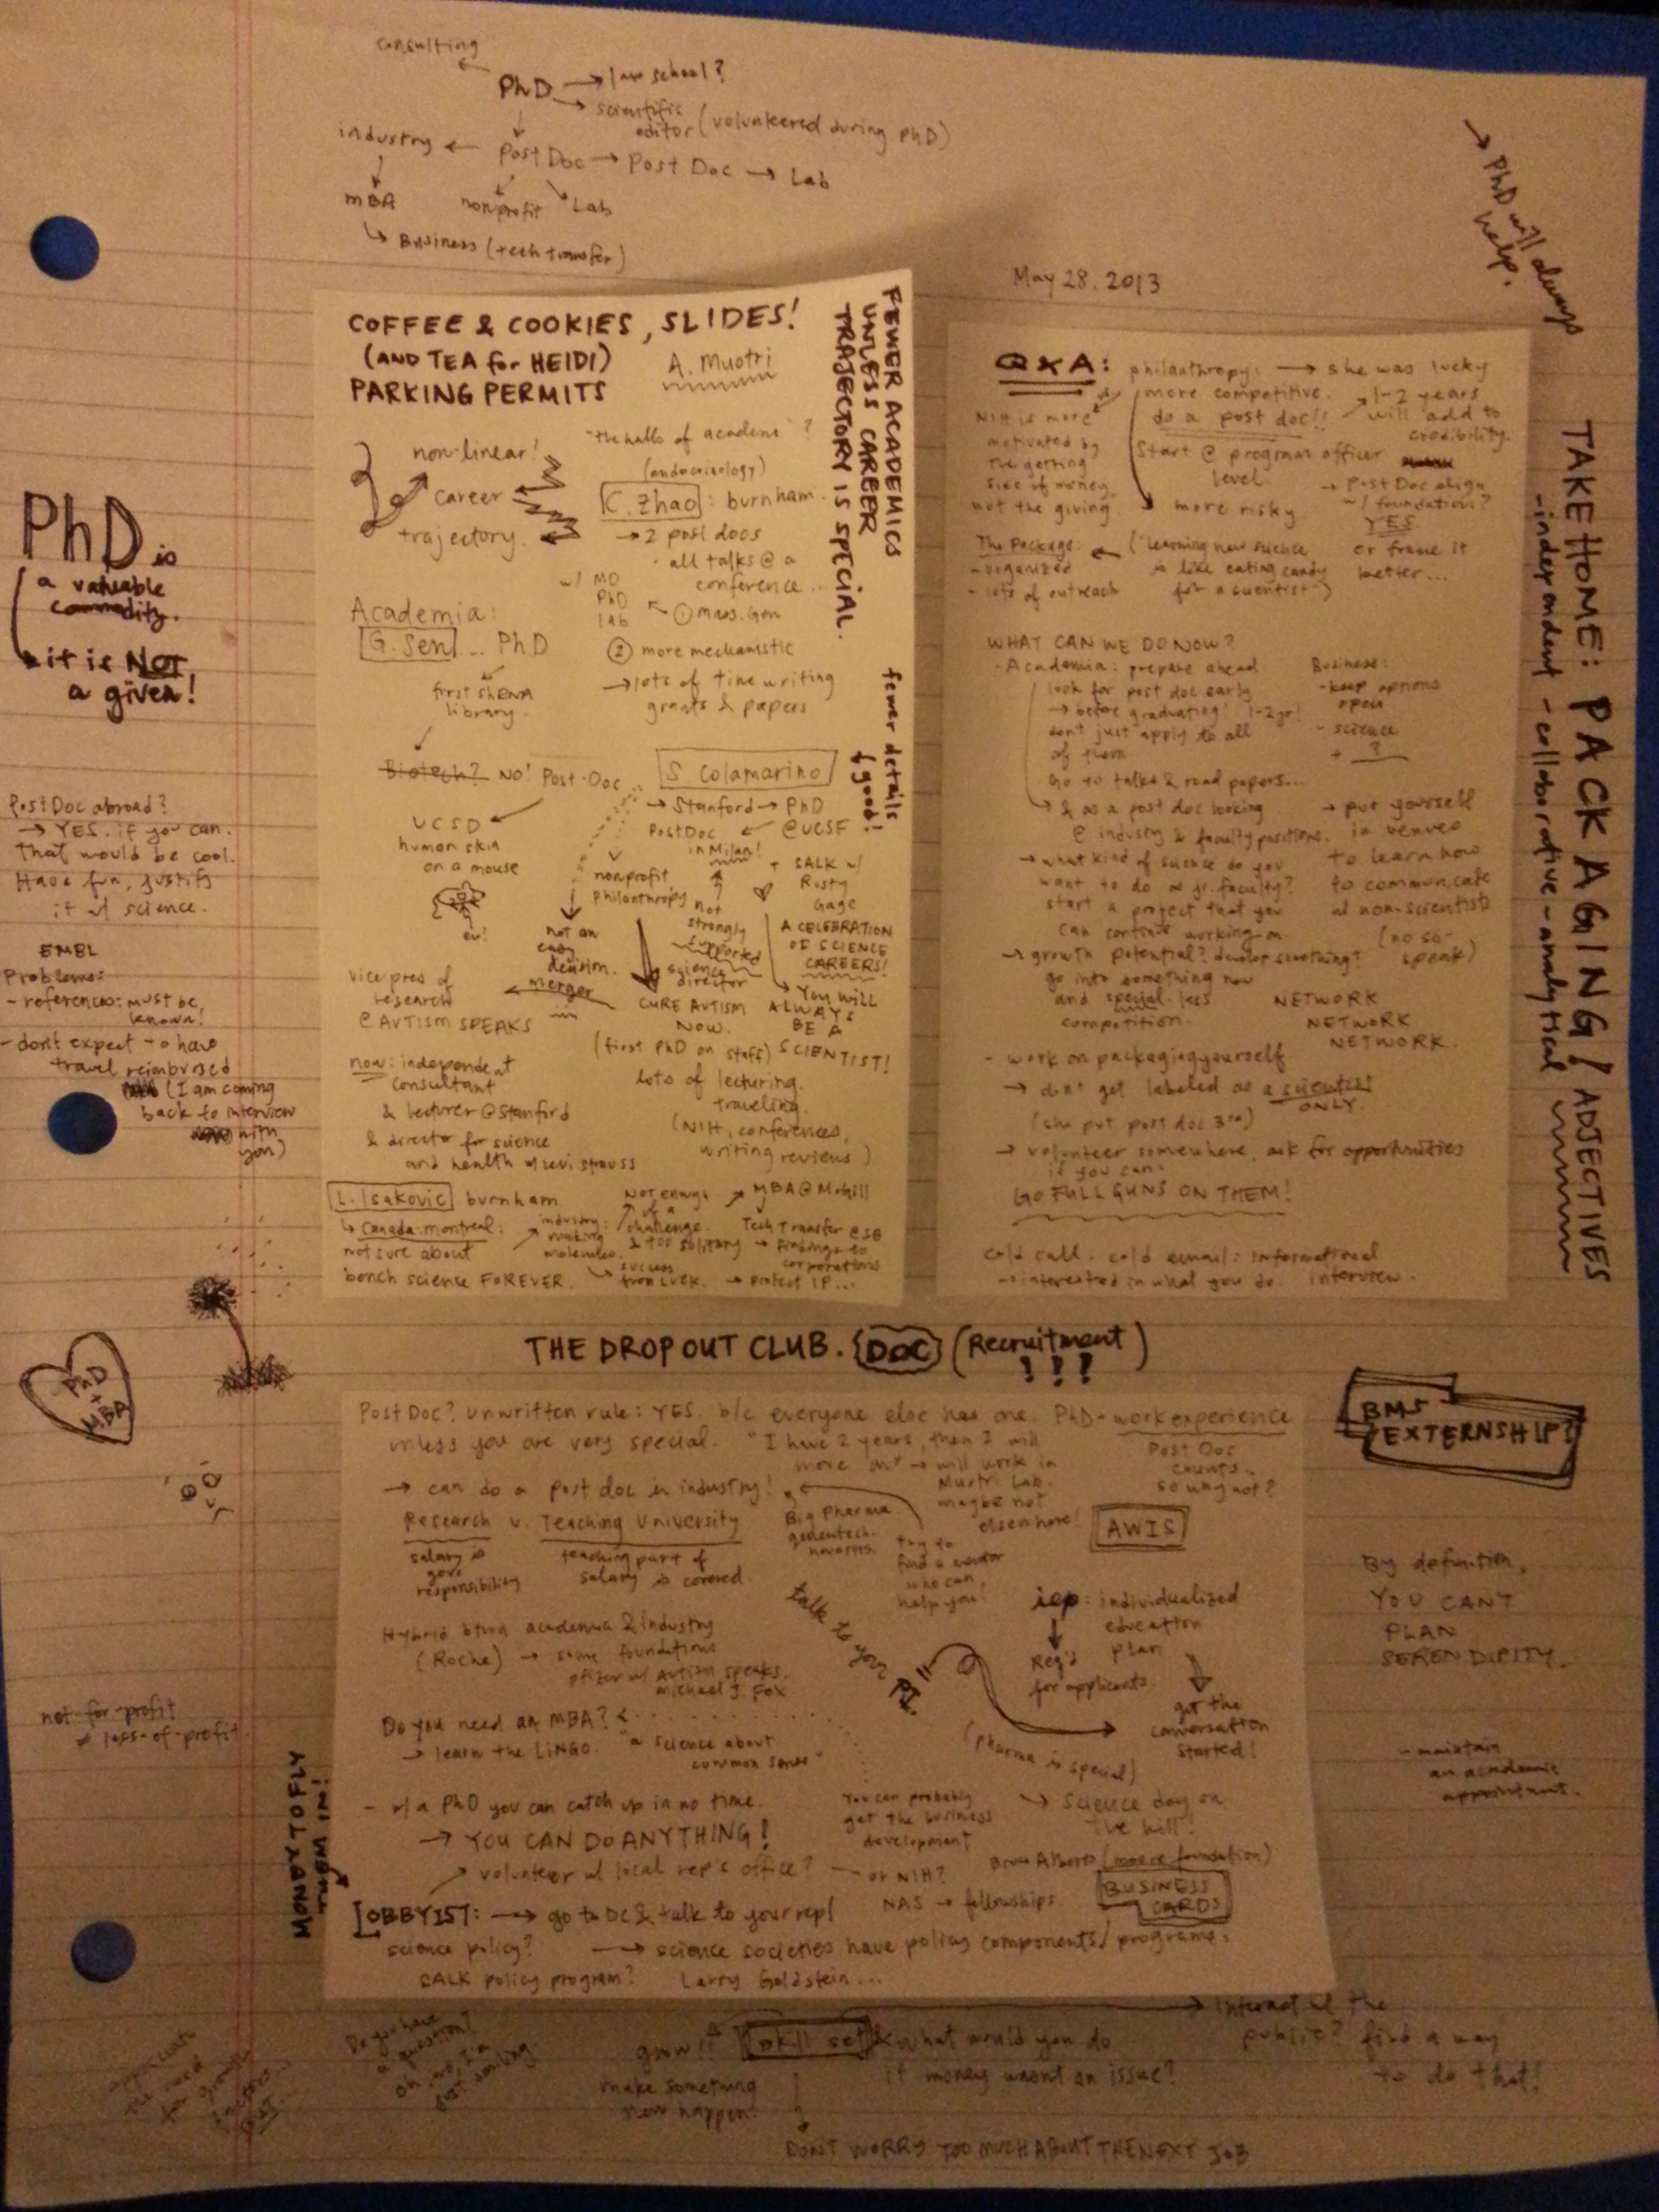 consulting
PhD → law school?
→ scientific
editor (volunteered during PhD)
industry ← Post Doc → Post Doc → Lab
MBA nonprofit Lab
↳ Business (tech transfer)
→ PhD will always
help.
May 28, 2013
COFFEE & COOKIES, SLIDES!
(AND TEA for HEIDI)
PARKING PERMITS
A. Muotri
FEWER ACADEMICS
UNLESS CAREER
TRAJECTORY IS SPECIAL.
non-linear!
career
trajectory
"the halls of academe"?
(endocrinology)
C. Zhao: burnham.
→ 2 post docs
- all talks @ a
conference...
w/ MD
PhD
lab
← ① mass. Gen
② more mechanistic
→ lots of time writing
grants & papers
Academia:
G. Sen... PhD
first shRNA
library
Biotech? NO! Post-Doc
UCSD
human skin
on a mouse
ew!
fewer details
↓ good!
S. Colamarino
→ Stanford → PhD
@UCSF
Post Doc
in Milan!
+ SALK w/
Rusty
Gage
nonprofit
philanthropy
not
strongly
supported
not an
easy
decision.
A CELEBRATION
OF SCIENCE
CAREERS!
↳ YOU WILL
ALWAYS
BE A
SCIENTIST!
science
director
CURE AUTISM
NOW.
(first PhD on staff)
merger
vice pres of
research
@ AUTISM SPEAKS
now: independent
consultant
& lecturer @ Stanford
& director for science
and health w/ levi strauss
lots of lecturing.
traveling.
(NIH, conferences,
writing reviews)
L. Isakovic burnham
↳ Canada: montreal:
not sure about
bench science FOREVER.
industry:
making
molecules.
Not enough
of a
challenge.
& too solitary
success
from luck.
MBA @ McGill
Tech Transfer @ SB
→ findings to
corporations
→ protect IP...
Q&A: philanthropy: → she was lucky
more competitive.
do a post doc!! → 1-2 years
will add to
credibility.
NIH is more
motivated by
the getting
side of money,
not the giving
Start @ program officer
level.
→ Post Doc align
w/ foundations?
YES
or frame it
better...
more risky
The Package: ←
- organized
- lots of outreach
("learning new science
is like eating candy
for a scientist")
WHAT CAN WE DO NOW?
- Academia: prepare ahead
look for post doc early
→ before graduating! 1-2yr!
don't just apply to all
of them
Go to talks & read papers...
↳ & as a post doc looking
@ industry & faculty positions.
→ what kind of science do you
want to do as jr. faculty?
start a project that you
can continue working on
→ growth potential? develop something?
go into something new
and special. less
competition.
Business:
- keep options
open
- science
+ ?
→ put yourself
in venues
to learn how
to communicate
w/ non-scientists
(no so-
speak)
NETWORK
NETWORK
NETWORK.
- work on packaging yourself
→ don't get labeled as a scientist
ONLY.
(she put post doc 3rd)
→ volunteer somewhere, ask for opportunities
if you can.
GO FULL GUNS ON THEM!
cold call. cold email: informational
→ interested in what you do. interview.
TAKE HOME: PACKAGING! ADJECTIVES
- independent - collaborative - analytical
PhD is
a valuable
commodity.
it is NOT
a given!
Post Doc abroad?
→ YES. if you can.
That would be cool.
Have fun, justify
it w/ science.
EMBL
Problems:
- references: must be
known!
- don't expect to have
travel reimbursed
(I am coming
back to interview
with
you)
PhD
+
MBA
THE DROP OUT CLUB. {DOC} (Recruitment
!!!)
BMS
EXTERNSHIP?
Post Doc? unwritten rule: YES. b/c everyone else has one.
unless you are very special.
PhD - work experience
Post Doc
counts.
so why not?
"I have 2 years, then I will
move on" → will work in
Muotri Lab.
maybe not
elsewhere!
→ can do a post doc in industry!
Big pharma.
genentech.
novartis.
try to
find a mentor
who can
help you!
AWIS
Research v. Teaching University
salary is
gov's
responsibility
teaching part of
salary is covered.
talk to your PI!!
iep: individualized
education
plan
Req'd
for applicants
get the
conversation
started!
Hybrid btwn academia & industry
(Roche) → some foundations
pfizer w/ Autism speaks.
michael J. Fox
Do you need an MBA?
→ learn the LINGO.
"a science about
common sense"
(pharma is special)
- w/ a PhD you can catch up in no time.
→ YOU CAN DO ANYTHING!
You can probably
get the business
development
→ science day on
the hill!
volunteer w/ local rep's office? — or NIH?
Bruce Alberts (moore foundation)
NAS → fellowships
BUSINESS
CARDS
LOBBYIST: → go to DC & talk to your rep!
science policy? → science societies have policy components/programs.
SALK policy program? Larry Goldstein...
MONEY TO FLY
THEM IN!
not-for-profit
≠ loss-of-profit
By definition,
YOU CAN'T
PLAN
SERENDIPITY.
- maintain
an academic
appointment.
Do you have
a question?
oh, no, I'm
just smiling
grow!!
make something
new happen.
skill set
What would you do
if money wasn't an issue?
→ interact w/ the
public? find a way
to do that!
DON'T WORRY TOO MUCH ABOUT THE NEXT JOB